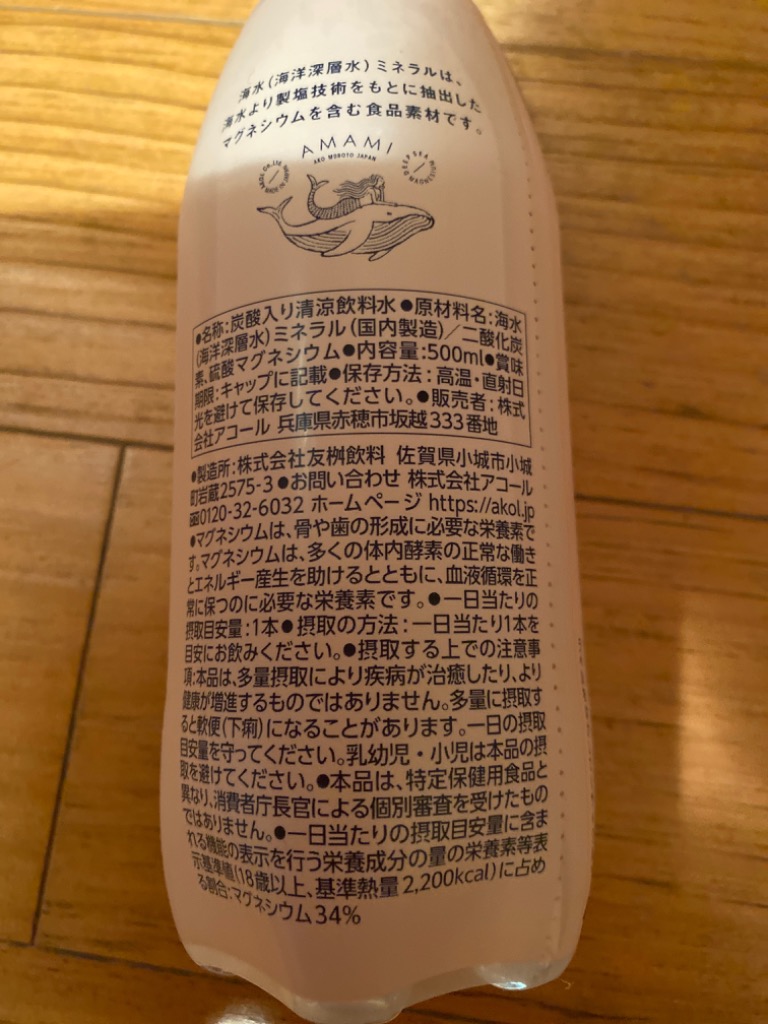 海水(海洋深層水)ミネラルは、
海水より製塩技術をもとに抽出した
マグネシウムを含む食品素材です。
AMAMI
AKO MUROTO JAPAN
●名称:炭酸入り清涼飲料水●原材料名:海水
(海洋深層水)ミネラル(国内製造)/二酸化炭
素、硫酸マグネシウム●内容量:500ml●賞味
期限:キャップに記載●保存方法:高温・直射日
光を避けて保存してください。●販売者:株式
会社アコール 兵庫県赤穂市坂越333番地
●製造所:株式会社友桝飲料 佐賀県小城市小城
町岩蔵2575-3●お問い合わせ 株式会社アコール
0120-32-6032 ホームページ https://akol.jp
●マグネシウムは、骨や歯の形成に必要な栄養素で
す。マグネシウムは、多くの体内酵素の正常な働き
とエネルギー産生を助けるとともに、血液循環を正
常に保つのに必要な栄養素です。●一日当たりの
摂取目安量:1本●摂取の方法:一日当たり1本を
目安にお飲みください。●摂取する上での注意事
項:本品は、多量摂取により疾病が治癒したり、より
健康が増進するものではありません。多量に摂取す
ると軟便(下痢)になることがあります。一日の摂取
目安量を守ってください。乳幼児・小児は本品の摂
取を避けてください。●本品は、特定保健用食品と
異なり、消費者庁長官による個別審査を受けたもの
ではありません。●一日当たりの摂取目安量に含ま
れる機能の表示を行う栄養成分の量の栄養素等表
示基準値(18歳以上、基準熱量2,200kcal)に占め
る割合:マグネシウム34%